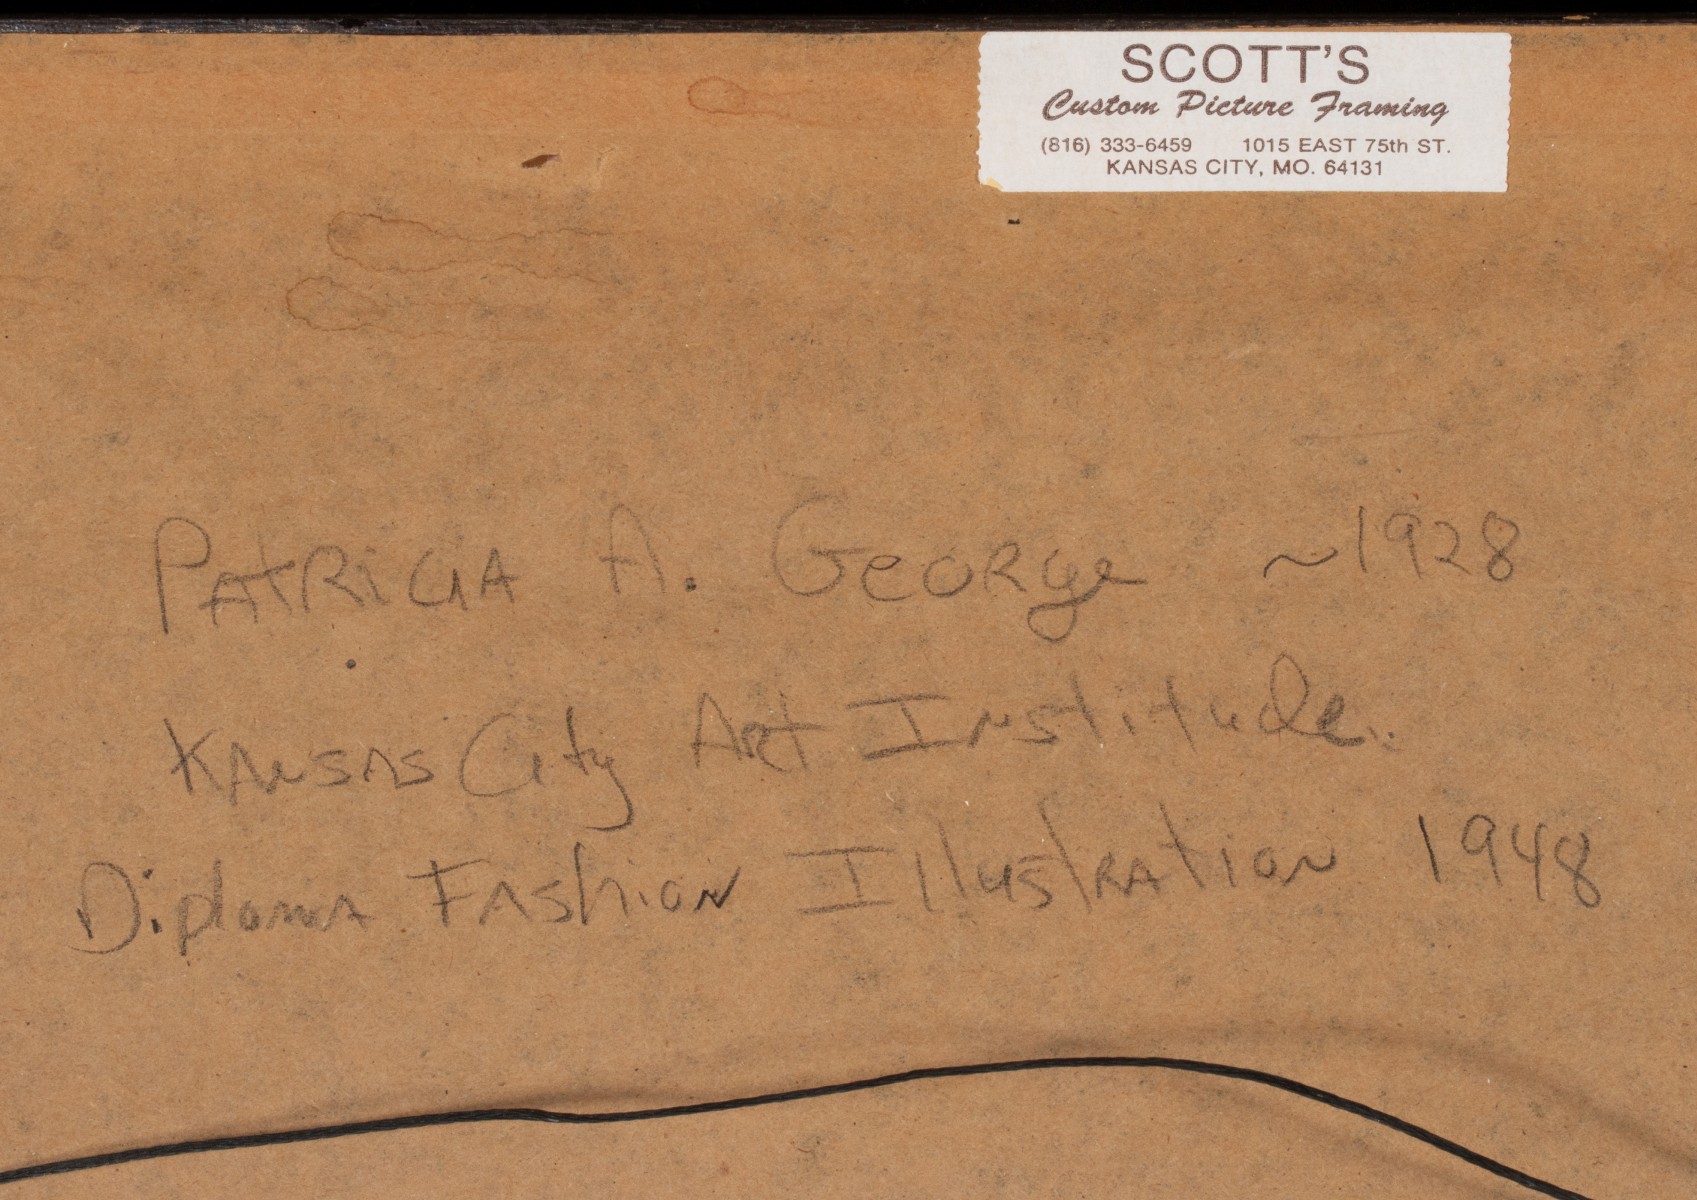 SCOTT'S
Custom Picture Framing
(816) 333-6459 1015 EAST 75th ST.
KANSAS CITY, MO. 64131
PATRICIA A. GEORGE ~1928
KANSAS City ARt Institude.
Diploma FAShioN IllustRAtioN 1948